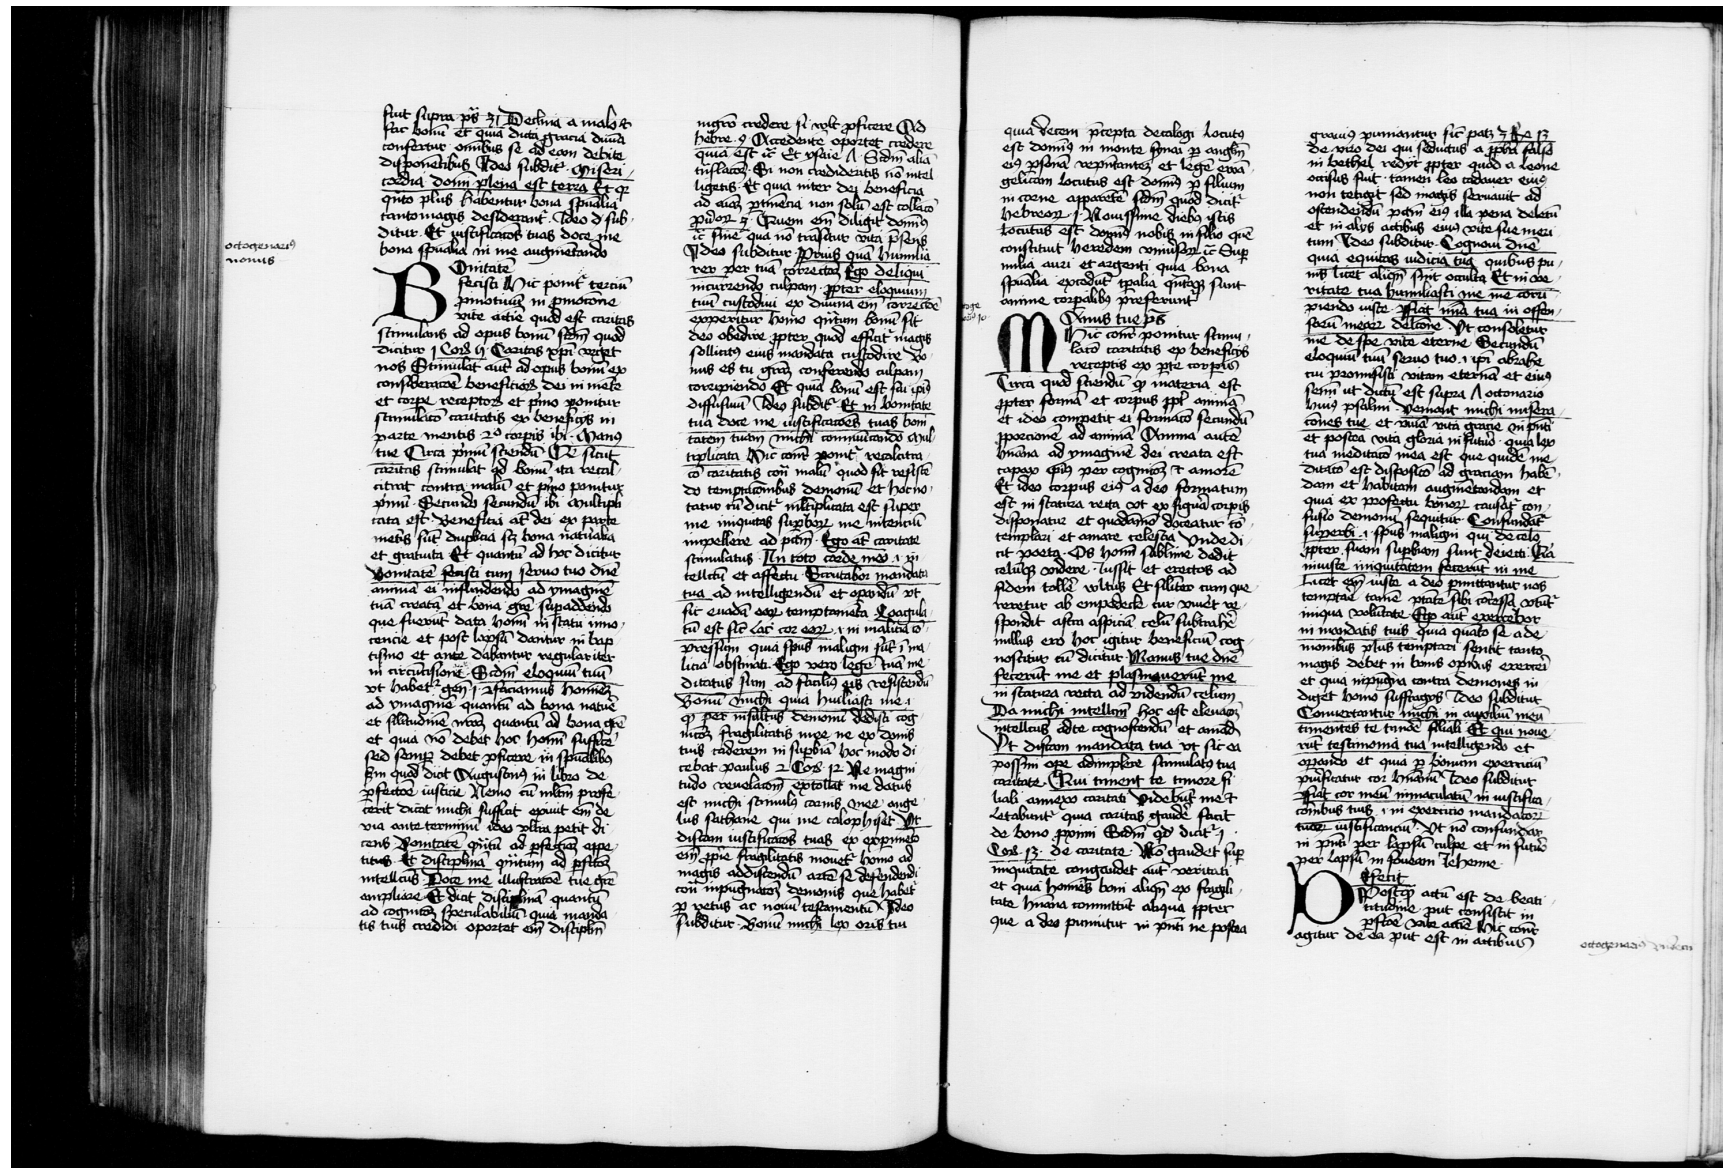 fuit supra ps 31 Declina a malo et
fac bonū et quia dicta gracia diuina
confertur omībus se ad eam debite
disponentibus Ideo subdit Miseri
cordia domī plena est terra Et qr
qnto plus habentur bona spūalia
tanto magis desiderant Ideo
ditur Et iustificacoēs tuas doce me
bona spūalia in me augmētando
octogenariꝰ
nonus
Bonitatē
fecisti Hic ponit terciū
pmotiuū in pmocione
vite actiue quod est caritas
stimulans ad opus bonū scdm quod
dicitur Caritas xpi vrget
nos Stimulat aut ad opus bonū ex
consideracōe beneficioꝝ dei in mēte
et corpe receptoꝝ et pmo ponitur
stimulacō caritatis ex beneficijs in
parte mentis 2º corpis ibi Manꝰ
tue Circa pmū sciendū Qd sicut
caritas stimulat ad bonū ita recal
citrat contra malū et pmo ponitur
pmū Secundo secundū ibi Multipli
cata est Beneficia at dei ex parte
mētis sūt duplicia scz bona naturalia
et gratuita Et quantū ad hoc dicitur
Bonitatē fecisti cum seruo tuo dnē
animā ei infundendo ad ymaginē
tuā creatā et bona grē supaddendo
que fuerūt data homī in statu inno
cencie et post lapsū dantur in bap
tismo et ante dabantur regulariter
in circūcisione Scdm eloquiū tuū
vt habet gen 1 faciamus hominē
ad ymaginē quantū ad bona nature
et silitudinē nrāꝫ quantū ad bona grē
et quia nō debet hoc homī sufficē
sed semp debet pficere in spūalibꝰ
scdm quod dicit Augustinꝰ in libro de
pfectōe iusticie Nemo cū mltm profe
cerit dicat michi sufficit exiuit em de
via ante terminū ideo vltra petit di
cens Bonitatē quātū ad pfectum appe
titus Et disciplinā quātum ad pfectū
intellectus Doce me illustracōe tue grē
ampliare Et dicit disciplinā quantū
ad cognicōꝫ speculabiliū quia manda
tis tuis credidi oportet em disciplm
nigrō credere si vult pficere Ad
hebre Accedente oportet credere
quia est Et ysaie Scdm aliā
translacōꝫ Si non credideritis nō intel
ligetis Et quia inter dei beneficia
ad eiꝫ ptinencia non solū est collacō
Quem em diligit domꝰ
sine qua nō trāsitur vita psens
Ideo subditur Prius quā humilia
rer per tuā correctōꝫ Ego deliqui
incurrendo culpam ppter eloquium
tuū custodiui ex diuina em correctōe
experitur homo quātum bonū sit
deo obedire ppter quod efficit magis
sollicitus eius mandata custodire Bo
nus es tu grāꝫ conferendo culpam
corripiendo Et quia bonū est sui ipiꝰ
diffusiuū Ideo subdit Et in bonitate
tua doce me iustificacōes tuas boni
tatem tuam michi cōmunicando Mul
tiplicata Hic cont ponit recalcitra
cō caritatis cont malū quod sit resistē
do temptacionibus demonū et hoc no
tatur cū dicit mltiplicata est super
me iniquitas supboꝝ me intenciū
impellere ad pctm Ego at caritate
stimulatus In toto corde meo i in
tellectu et affectu Scrutabor mandata
tua ad intelligendū et operādū vt
sic euadā eoꝝ temptamēta Coagula
tū est sic lac cor eoꝝ i in malicia cō
pressum quia spūs maligni sūt in ma
licia obstinati Ego vero legē tuā me
ditatus sum ad facilius eis resistendū
Bonū michi quia huiliasti me i
qr per insultus demonū dedisti cog
nicōꝫ fragilitatis mee ne ex donis
tuis caderem in supbiā hoc modo di
cebat paulus 2 Cor 12 Ne magni
tudo reuelacōm extollat me datus
est michi stimulꝰ carnis mee ange
lus sathane qui me colaphiset Vt
discam iustificacōes tuas ex expimēto
em pprie fragilitatis mouet homo ad
magis addiscendū artē se defendendi
cont inpugnacōꝫ demonis que habet
p vetus ac nouū testamentū Ideo
subditur Bonū michi lex oris tui
quia decem pcepta decalogi locutꝰ
est domꝰ in monte synai p anglm
eiꝰ psonā reputantez et legē ewā
gelicam locutus est domꝰ p filium
in carne apparētē scdm quod dicit
hebreoꝝ 1 Nouissime diebꝰ istis
locutus est domꝰ nobis in filio quē
constituit heredem vniūsoꝝ Sup
milia auri et argenti quia bona
spūalia excedūt tpalia quātꝫ sunt
anime corpalibꝰ preferunt
Manus tue ps
Hic cont ponitur stimu
lacō caritatis ex beneficijs
receptis ex pte corpis
Circa quod sciendū qr materia est
ppter formā et corpus ppt animā
et ideo competit ei formacō secundū
pporcionē ad animā Anima autē
hūana ad ymaginē dei creata est
capax ipiꝰ per cognicōꝫ et amorē
Et ideo corpus eiꝰ a deo formatum
est in statura recta vt ex figura corpis
disponatur et quodāmō doceatur cō
templari et amare celestia Vnde di
cit poeta Os homī sublime dedit
celūqꝫ videre iussit et erectos ad
sidera tollē voltus Et siliter cum que
reretur ab empedocle cur viueret re
spondit astra aspiciā celū subtrahe
nullus ero hoc igitur beneficiū cog
noscitur cū dicitur Manus tue dnē
fecerūt me et plasmauerūt me
in statura recta ad videndū celum
Da michi intellcm hoc est eleuacōꝫ
intellectus ad te cognoscendū et amādū
Vt discam mandata tua vt sic ea
possim ope adimplere stimulatꝰ tua
caritate Qui timent te timore fi
liali annexo caritati videbūt me et
letabuntur quia caritas gaudē facit
de bono pximi Scdm qd dicit 1
Cor 13 de caritate Nō gaudet sup
iniquitate congaudet aut veritati
et quia homēs boni aliqn ex fragili
tate hūana committūt aliqua ppter
que a deo puniutur in pnti ne postea
grauiꝰ puniantur sicut patz 3 Re 13
de viro dei qui seductus a ppha falso
in bethel redijt ppter quod a leone
occisus fuit tamen leo cadauer eiuꝰ
non tetigit sed magis seruauit ad
ostendendū pctm eiꝰ illa pena deletū
et in alijs actibus eiuꝰ vite sue meri
tum Ideo subditur Cognoui dnē
quia equitas iudicia tua quibus pu
nis licet aliqn sint occulta Et in ve
ritate tua humiliasti me me corri
piendo iuste Fiat mīa tua in offen
saꝝ meaꝝ delicōne Vt consoletur
me de spe vite eterne Secundū
eloquiū tuū seruo tuo i ipi abrahe
cui promisisti vitam eternā et eiuꝰ
semī ut dictū est supra octonario
huiꝰ psalmi Veniant michi misera
cōnes tue et viuā vita gracie in pnti
et postea vita gloria in futuro quia lex
tua meditacō mea est que quidē me
ditacō est disposicō ad graciam habē
dam et habitam augmētandam et
quia ex profectu bonoꝝ causat con
fusio demonū sequitur Confundāt
superbi i spūs maligni qui de celo
ppter suam supbiam sunt deiecti Qa
iniuste iniquitatem fecerūt in me
Licet em iuste a deo pmittantur nos
temptare tamē ptate sibi cōcessa vtūt
iniqua volūtate Ego aut exercebor
in mandatis tuis quia quāto se a de
monibus plus temptari sentit tanto
magis debet in bonis opibus exerceri
et quia in pugna contra demones in
diget homo suffragijs Ideo subditur
Conuertantur michi in auxiliū meū
timentes te timore filiali Et qui noue
rūt testimonia tua intelligendo et
opando et quia p bonum exerciciū
purificatur cor hūanū Ideo subditur
Fiat cor meū immaculatū in iustifica
cionibus tuis i in exercicio mandatoꝝ
tuoꝝ iustificanciū Vt nō confundar
in pnti per lapsū culpe et in futuro
per lapsū in foueam Iehenne
Defecit
Postqꝫ actū est de beati
titudine put consistit in
pfectōe vite actiue Hic cont
agitur de ea put est in actibus
octogenariꝰ